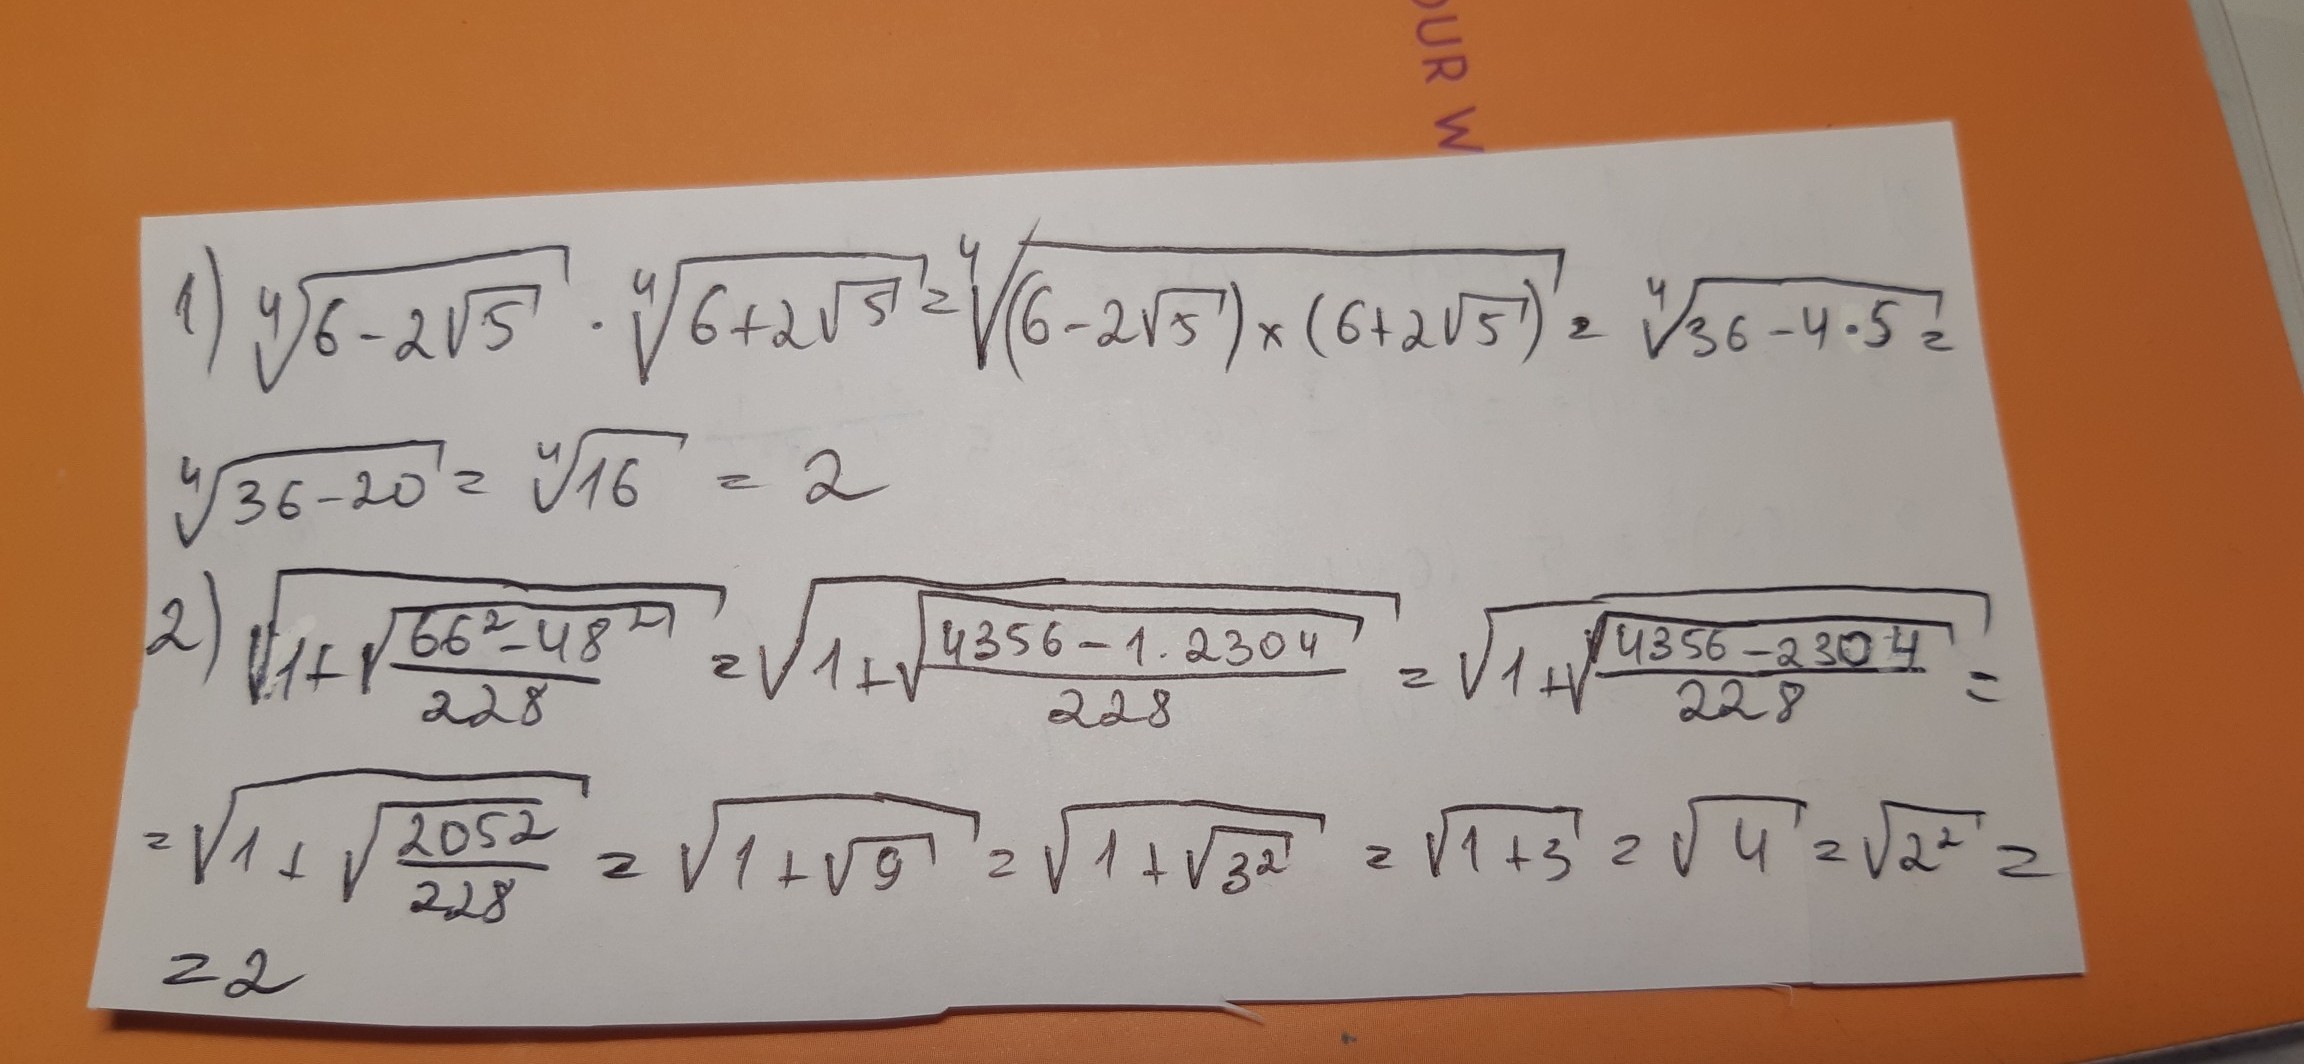 OUR W
1) ∜(6-2√5) · ∜(6+2√5) = ∜((6-2√5)×(6+2√5)) = ∜(36-4·5) =
∜(36-20) = ∜16 = 2
2) √(1+√((66²-48²)/228)) = √(1+√((4356-1·2304)/228)) = √(1+√((4356-2304)/228)) =
= √(1+√(2052/228)) = √(1+√9) = √(1+√3²) = √(1+3) = √4 = √2² =
= 2